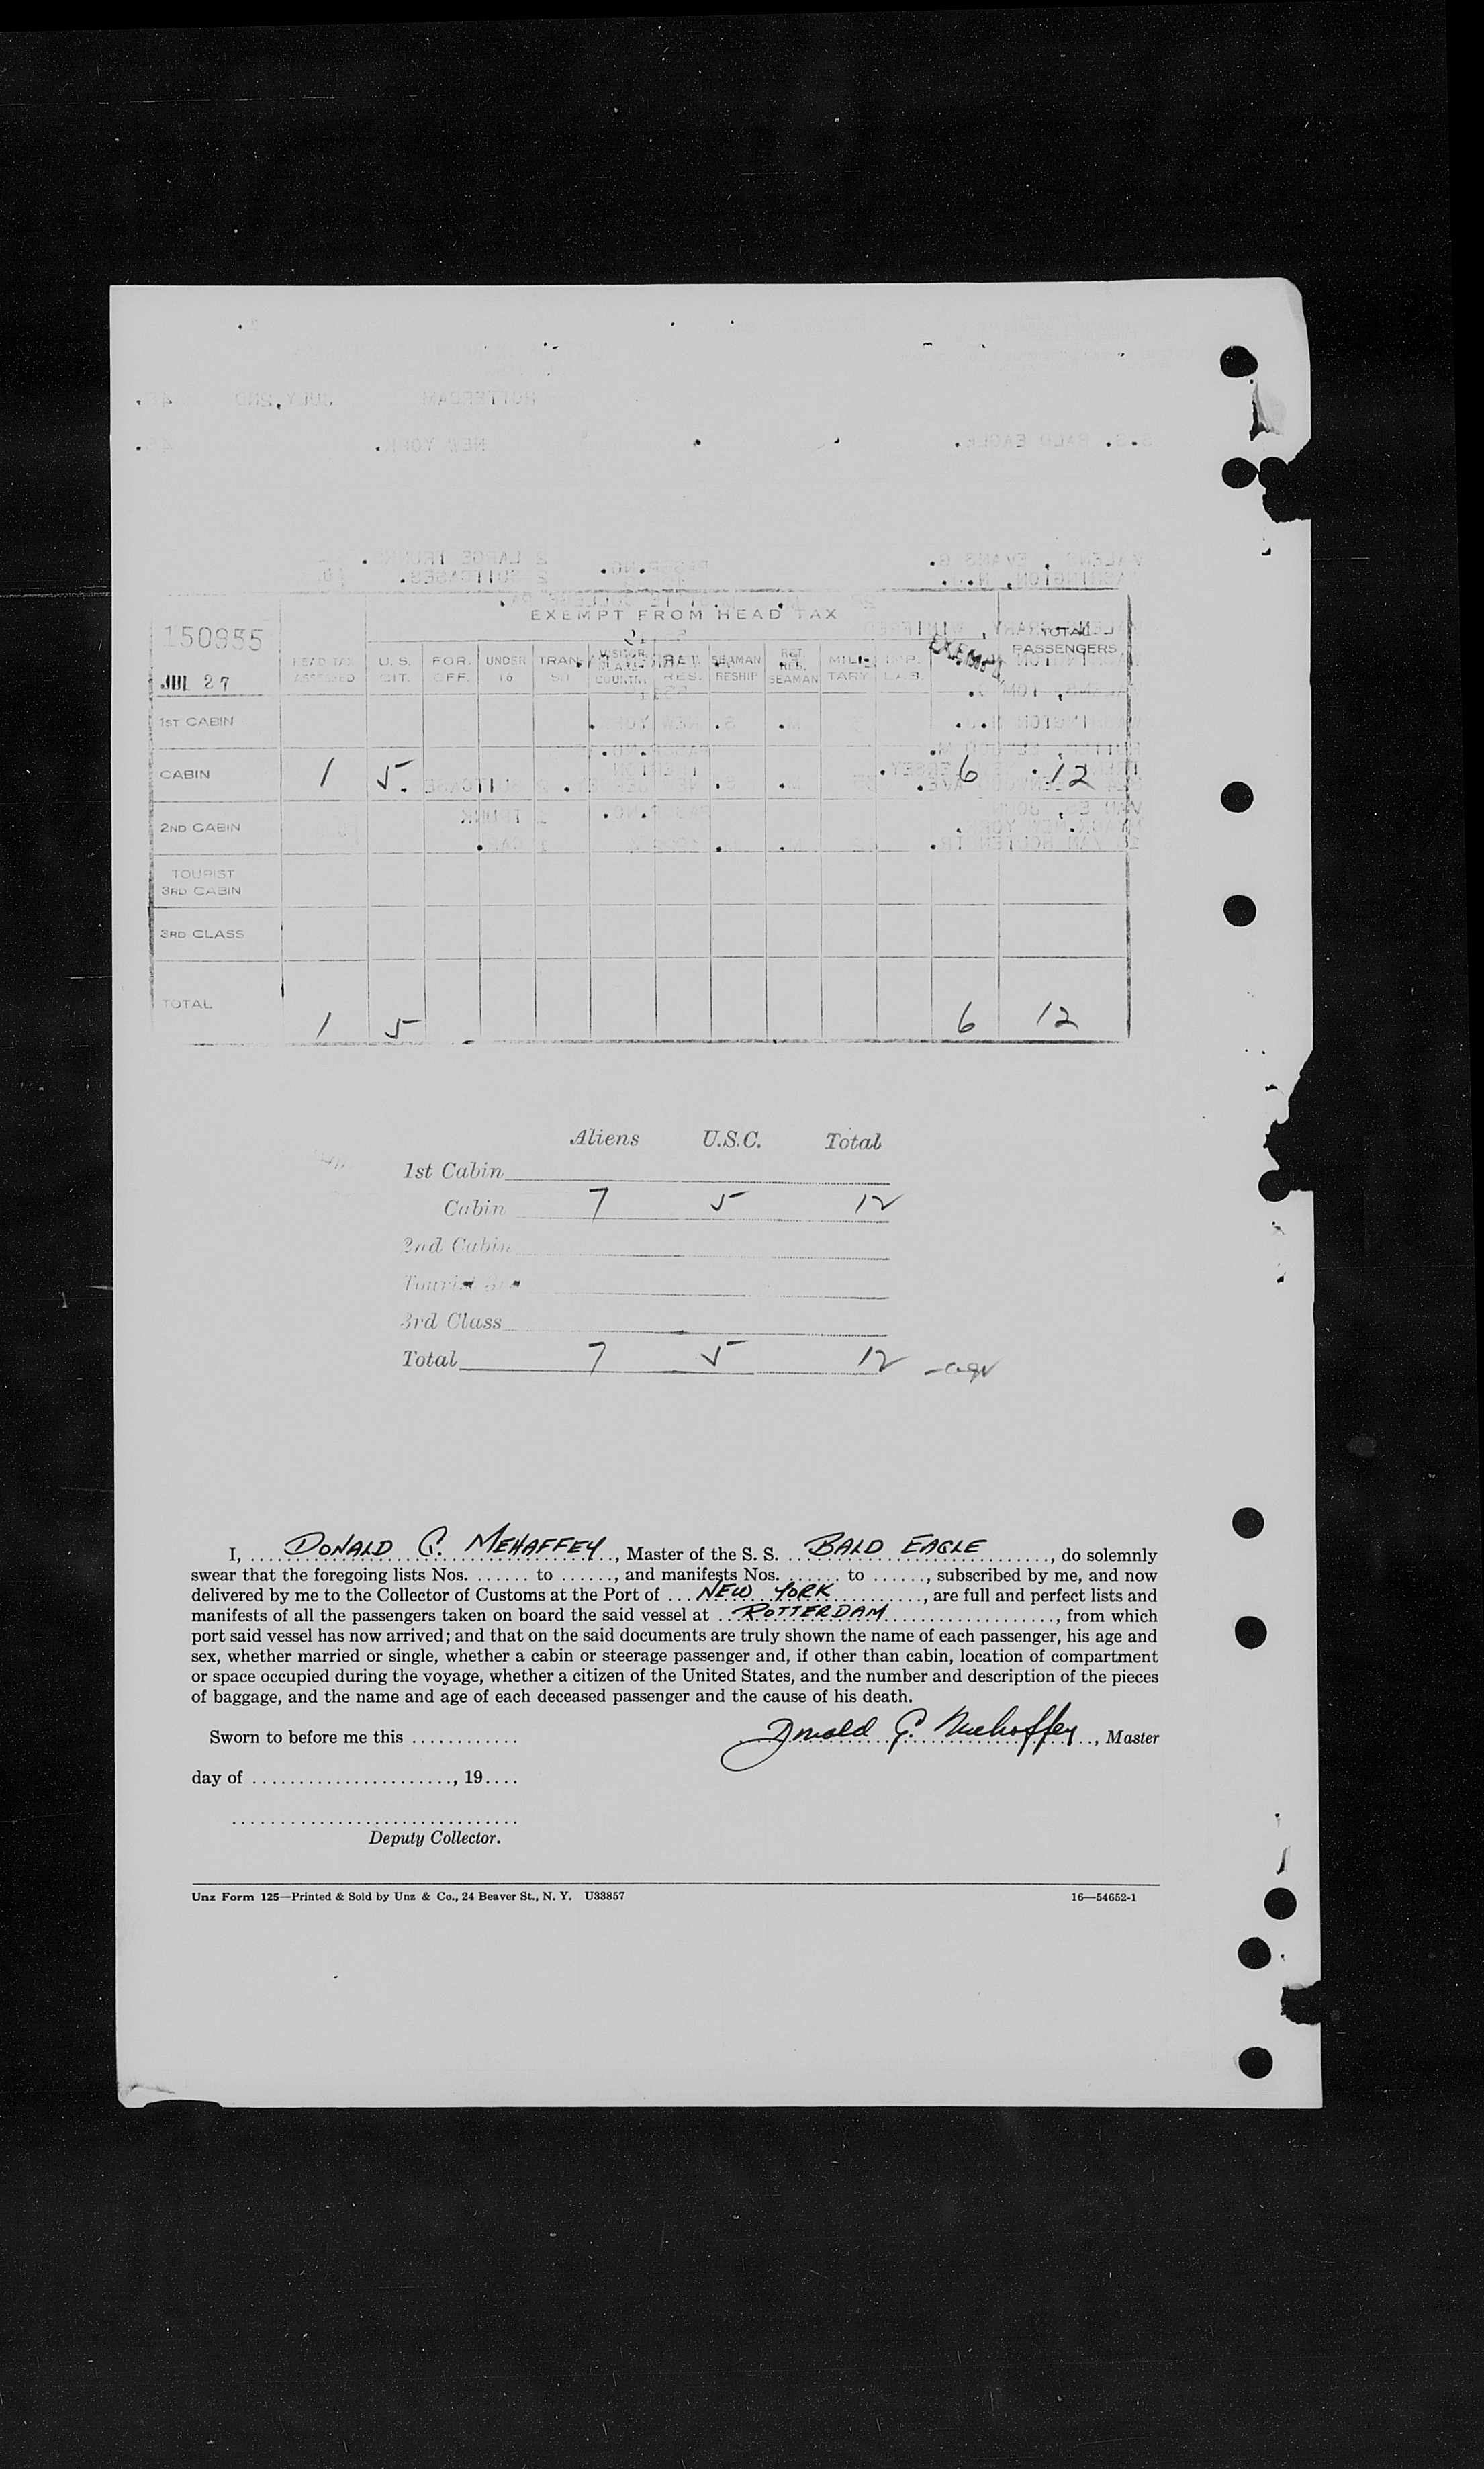 150955
JUL 27
EXEMPT FROM HEAD TAX
HEAD TAX ASSESSED
U. S. CIT.
FOR. OFF.
UNDER 16
TRAN-
COUNTRY
RET. RES.
SEAMAN RESHIP
RET. RES. SEAMAN
MILI- TARY
EXEMPT
TOTAL PASSENGERS
1ST CABIN
CABIN 1 5 6 12
2ND CABIN
TOURIST
3RD CABIN
3RD CLASS
TOTAL 1 5 6 12
Aliens U.S.C. Total
1st Cabin
Cabin 7 5 12
2nd Cabin
Tourist
3rd Class
Total 7 5 12
I, DONALD G. MEHAFFEY, Master of the S. S. BALD EAGLE, do solemnly
swear that the foregoing lists Nos. ....... to ......, and manifests Nos. ....... to ......, subscribed by me, and now
delivered by me to the Collector of Customs at the Port of NEW YORK, are full and perfect lists and
manifests of all the passengers taken on board the said vessel at ROTTERDAM, from which
port said vessel has now arrived; and that on the said documents are truly shown the name of each passenger, his age and
sex, whether married or single, whether a cabin or steerage passenger and, if other than cabin, location of compartment
or space occupied during the voyage, whether a citizen of the United States, and the number and description of the pieces
of baggage, and the name and age of each deceased passenger and the cause of his death.
Sworn to before me this ............
Donald G. Mehaffey, Master
day of ......................, 19....
Deputy Collector.
Unz Form 125—Printed & Sold by Unz & Co., 24 Beaver St., N. Y. U33857
16—54652-1